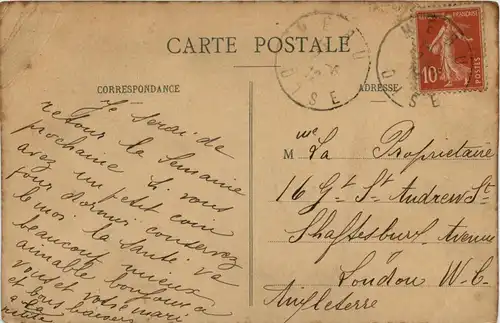 CARTE POSTALE
CORRESPONDANCE
ADRESSE
FRANÇAISE
10c
POSTES
OISE
OISE
Je serai de
retour la semaine
prochaine si vous
avez un petit coin
pour dormir conservez
le moi. la santé va
beaucoup mieux
aimable bonjour à
vous et votre mari
et bons baisers
à la
petite
M me La Propriétaire
16 Gt St Andrew St
Shaftesbury Avenue
London W.C.
Angleterre